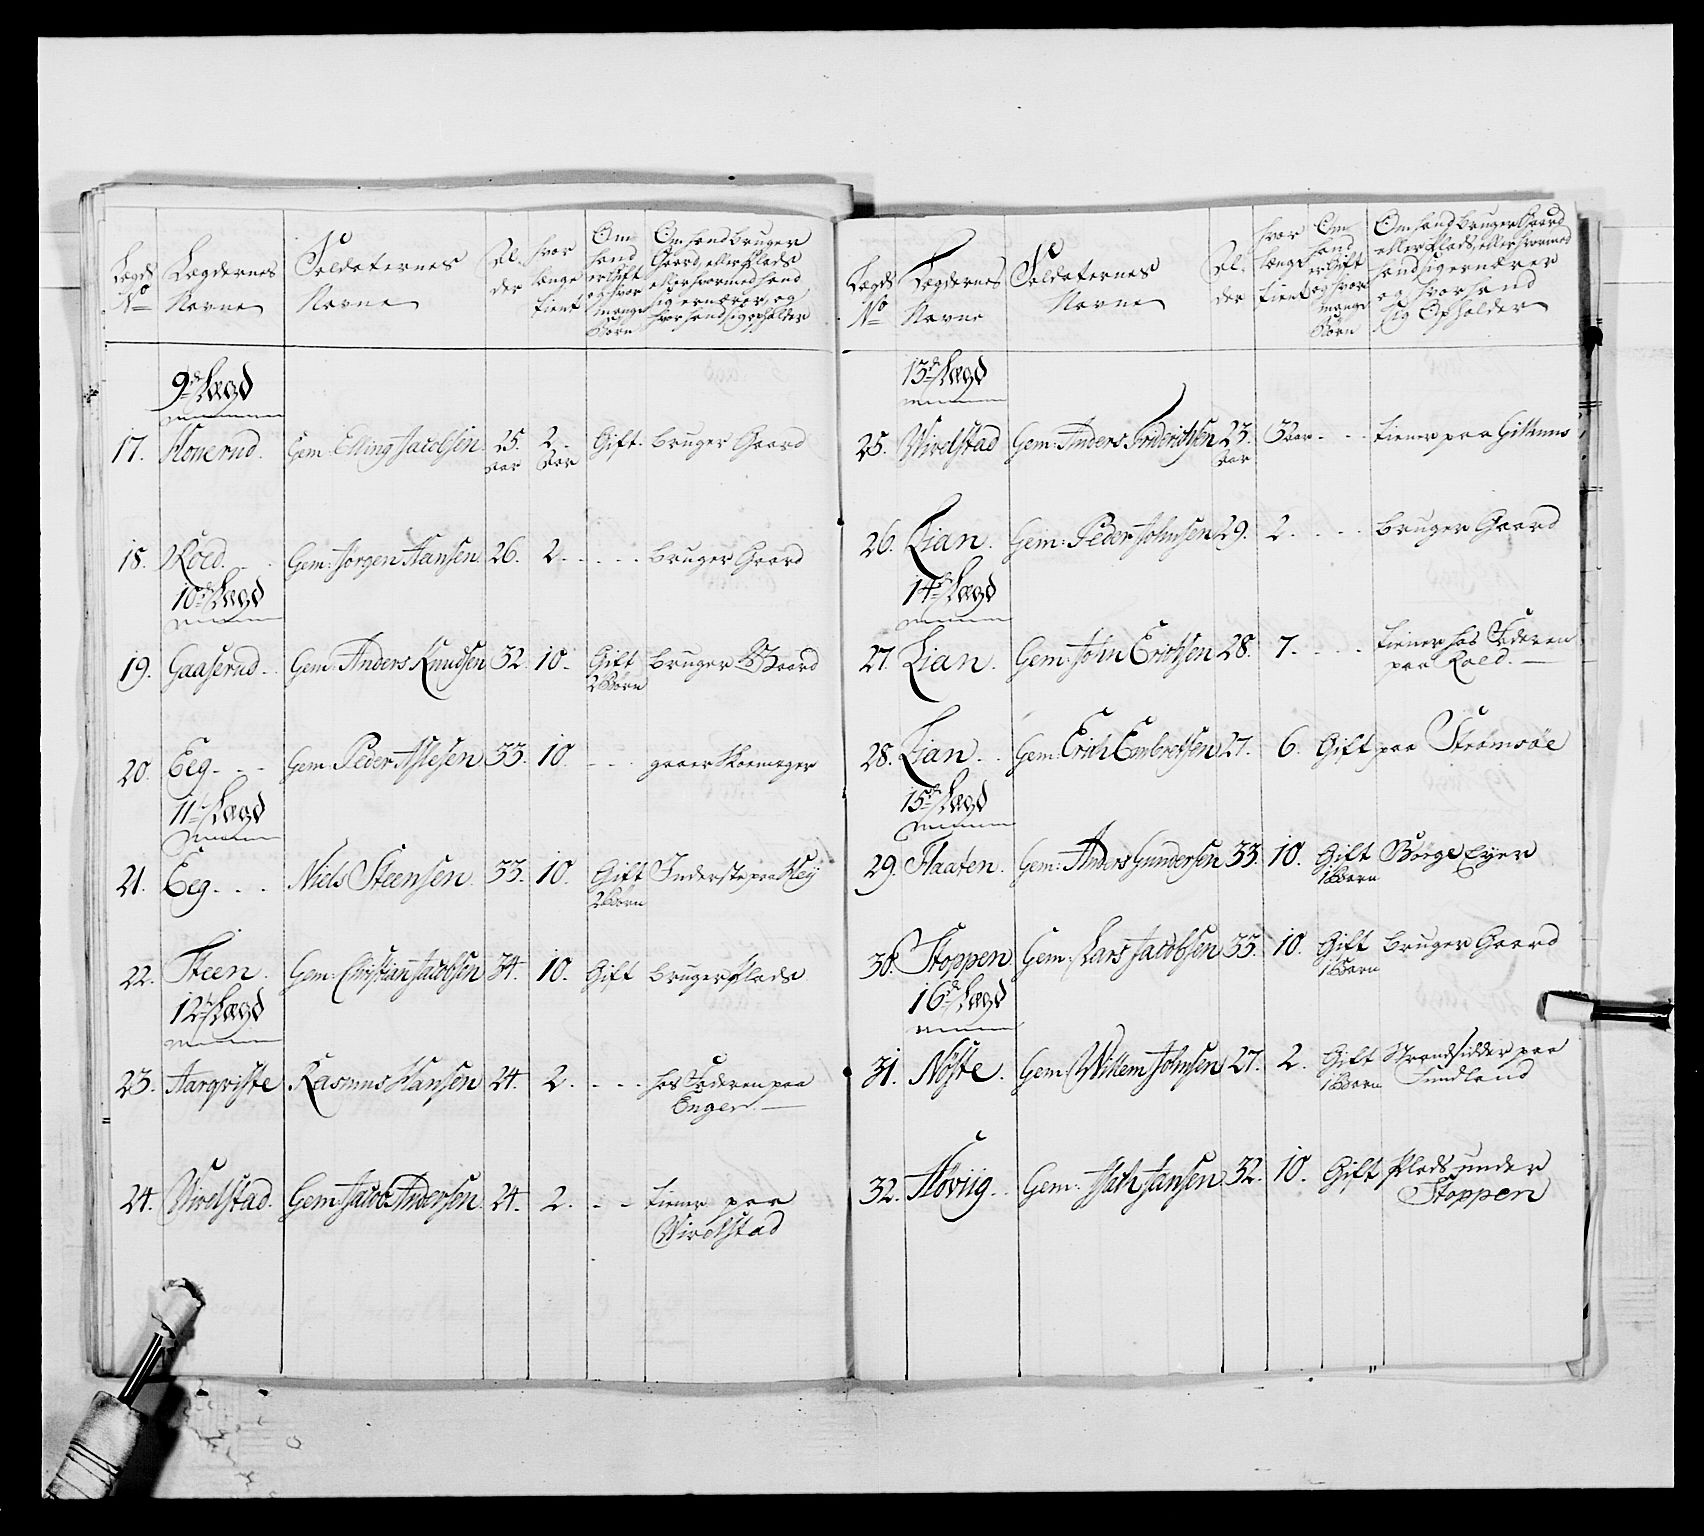 Lægds No
Lægdernes Navne
Soldaternes Navne
Al- der
hvor længe tient
Om hand er Gift og hvor mange Børn
Om hand bruger Gaard, eller Plads eller hvormed hand sig ernærer, og hvor hand sig opholder
9de Lægd
17. Honerud. Gem: Elling Jacobsen. 25. Aar 2. Aar Gift. bruger Gaard
18. Kold. Gem: Jørgen Hansen 26. 2. - - - bruger Gaard
10de Lægd
19. Gaaserud. Gem: Anders Knudsen 32. 10. Gift 2 Børn bruger Gaard
20. Eeg. - - Gem: Peder Aslesen 33. 10. - - - gaaer Skomager
11te Lægd
21. Eeg. - - - Niels Steensen. 33. 10. Gift 2 Børn Inderste paa Kleij
22. Steen. Gem: Christian Jacobsen 34. 10. Gift bruger Plads
12te Lægd
23. Aarqviste Rasmus Hansen 24. 2. - - - hos Faderen paa
Enger. —
24. Virelstad. Gem: Jacob Andersen. 24. 2. - - tiener paa
Virelstad
Lægds No
Lægdernes Navne
Soldaternes Navne
Al- der
hvor længe tient
Om hand er Gift og hvor mange Børn
Om hand bruger Gaard eller Plads, eller hvormed hand sig ernærer og hvor hand sig Opholder
13de Lægd
25. Virelstad Gem: Anders Friderichsen 23. Aar 3 Aar - - - tiener paa
26. Lian. Gem: Peder Johnsen 29. 2. - - - bruger Gaard
14de Lægd
27. Lian. Gem: John Erichsen 28. 7. - - - tiener hos Faderen
paa Kold. —
28. Lian. - - Gem: Erich Embretsen 27. 6. Gift paa Strømsøe
15de Lægd
29. Flaaten. Gem: Anders Gundersen 33. 10. Gift 1 Barn Eyer
30. Stoppen Gem: Lars Jacobsen 33. 10. Gift 1 Barn bruger Gaard
16de Lægd
31. Nøste. Gem: Willem Johnsen 27. 2. Gift 1 Barn Strandsidder paa
Sundland
32. Høviig. Gem: Jansen 32. 10. Gift Plads under
Stoppen